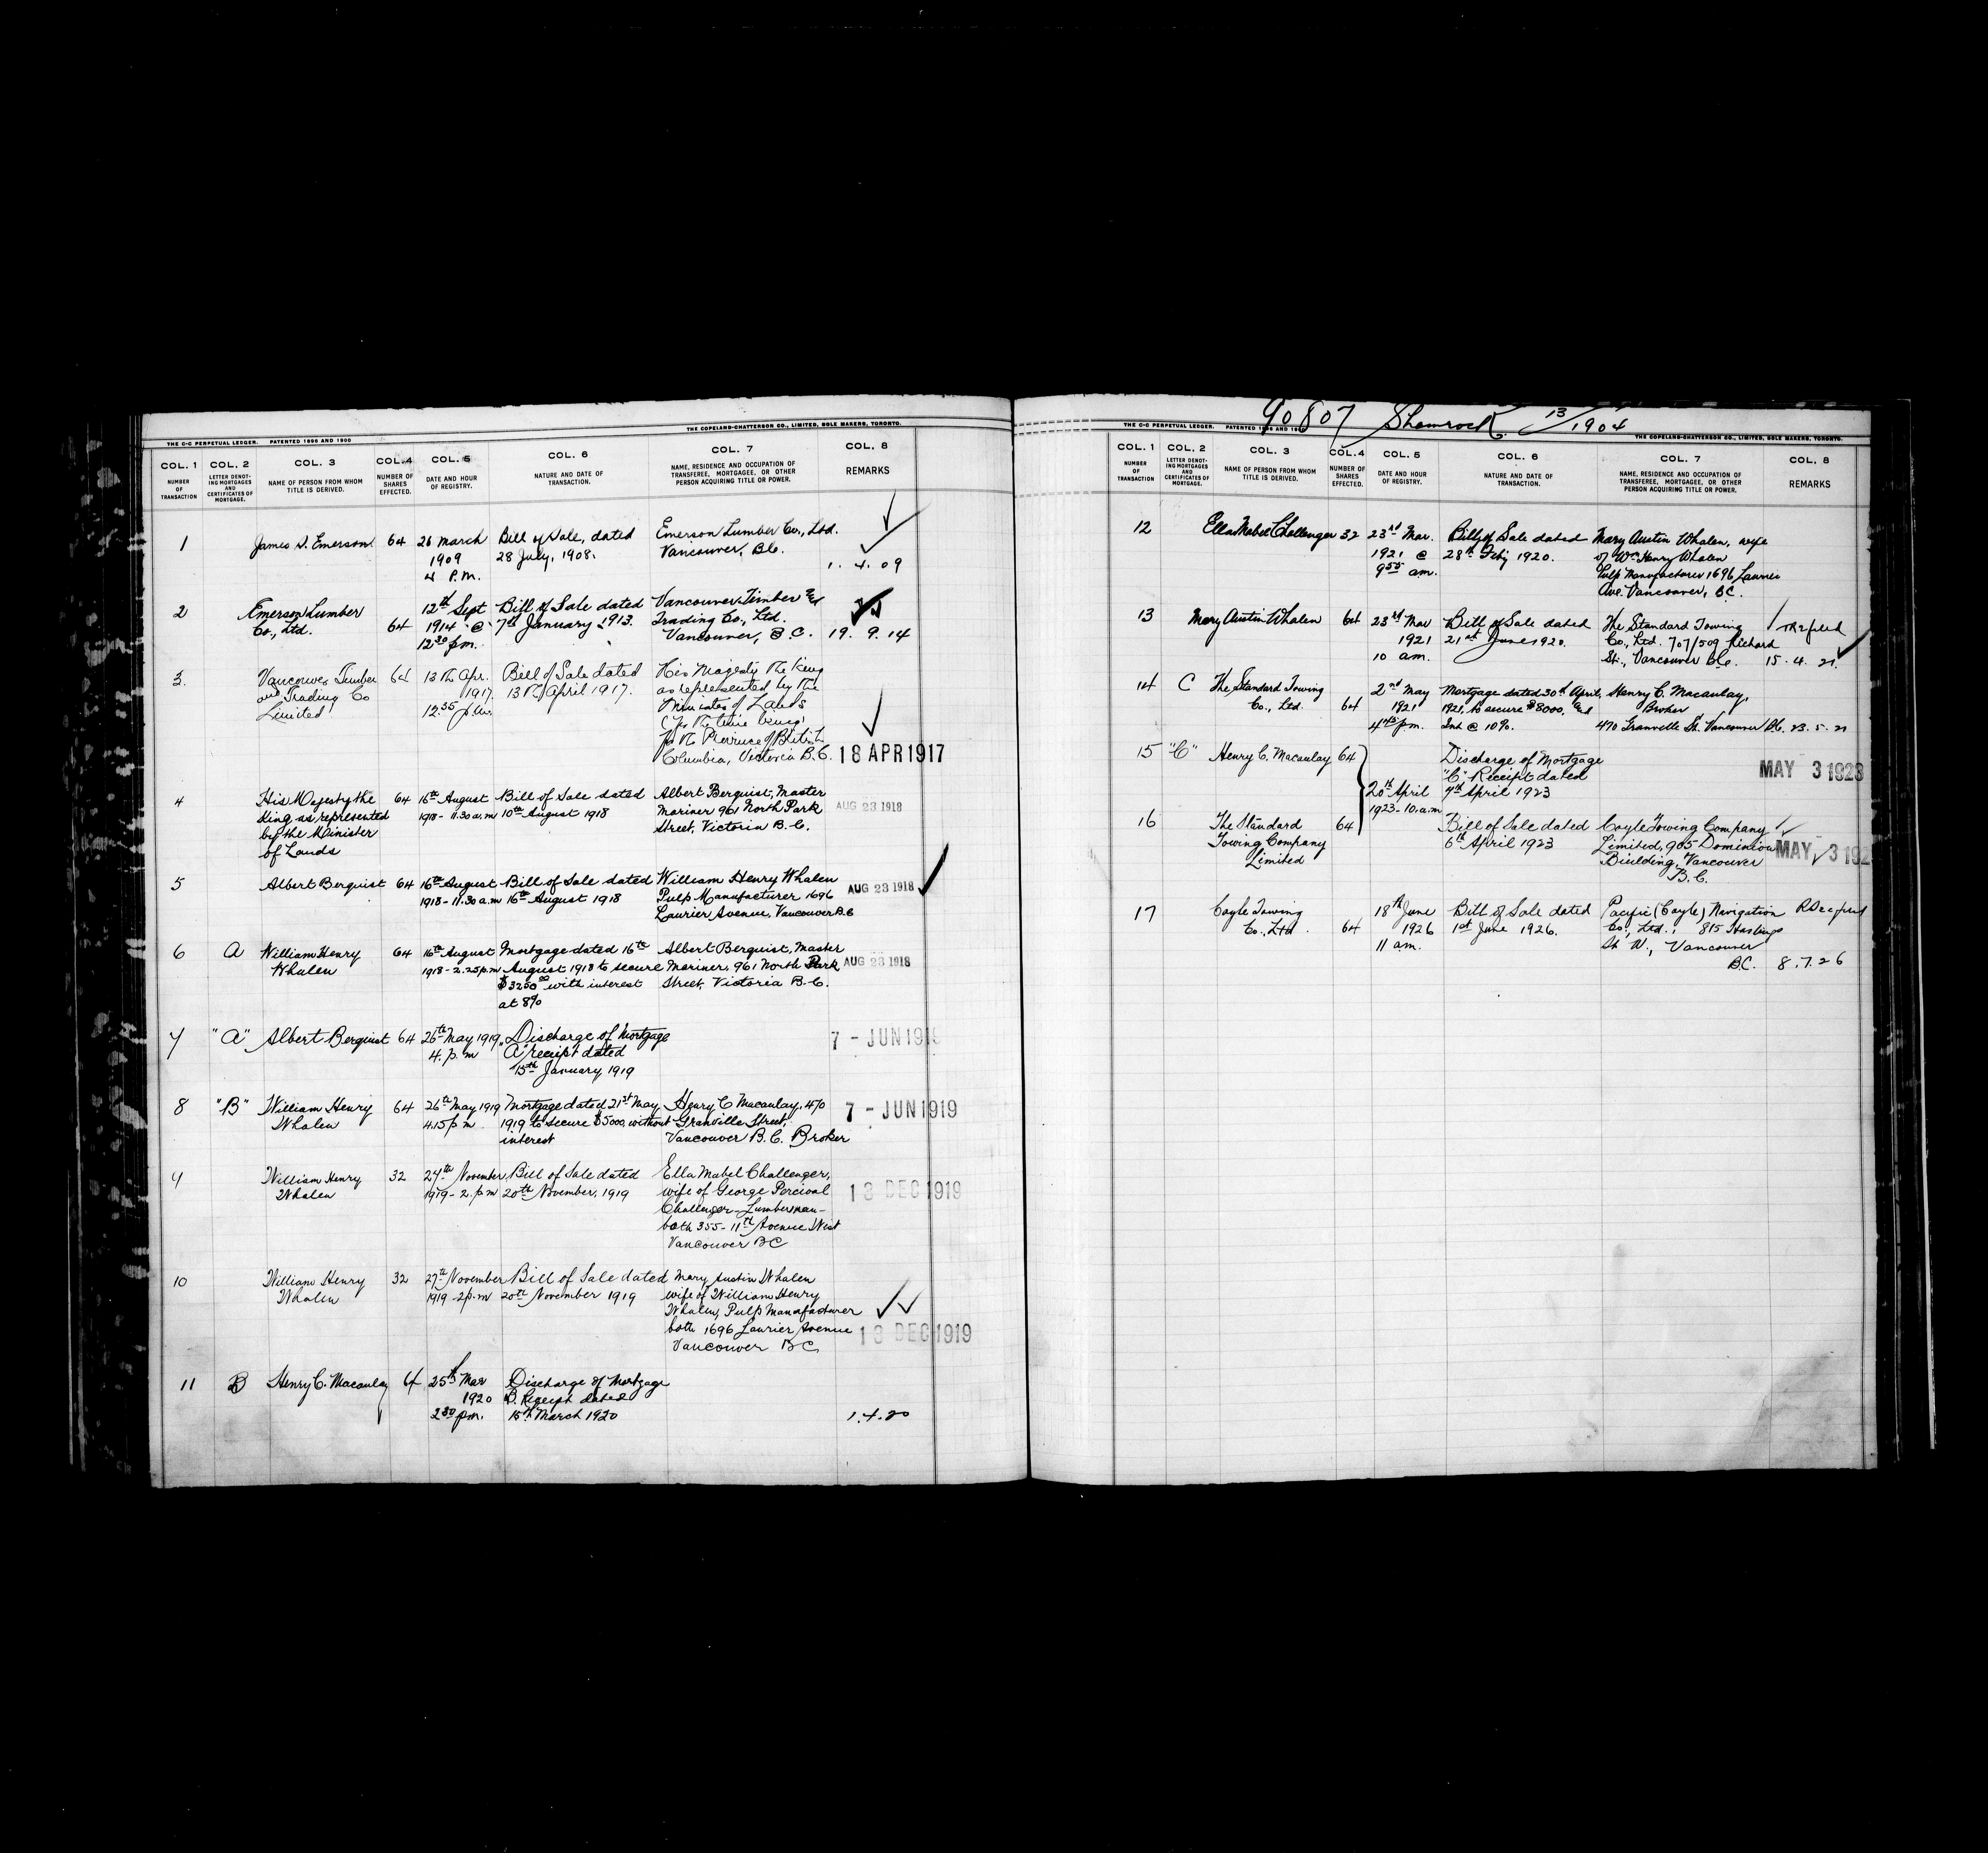 THE C-C PERPETUAL LEDGER. PATENTED 1896 AND 1900
THE COPELAND-CHATTERSON CO., LIMITED, SOLE MAKERS, TORONTO.
COL. 1 COL. 2 COL. 3 COL. 4 COL. 5 COL. 6 COL. 7 COL. 8
NUMBER OF TRANSACTION
LETTER DENOTING MORTGAGES AND CERTIFICATES OF MORTGAGE.
NAME OF PERSON FROM WHOM TITLE IS DERIVED.
NUMBER OF SHARES EFFECTED.
DATE AND HOUR OF REGISTRY.
NATURE AND DATE OF TRANSACTION.
NAME, RESIDENCE AND OCCUPATION OF TRANSFEREE, MORTGAGEE, OR OTHER PERSON ACQUIRING TITLE OR POWER.
REMARKS
1 James S. Emerson 64 26 March Bill of Sale, dated Emerson Lumber Co., Ltd.
1909 28 July, 1908. Vancouver, B.C.
4 P.M. 1. 4. 09
2 Emerson Lumber 12th Sept Bill of Sale dated Vancouver Timber and
Co., Ltd. 64 1914 @ 7th January 1913. Trading Co., Ltd.
12 30 pm. Vancouver, B.C. 19. 9. 14
3. Vancouver Timber 64 13th Apr. Bill of Sale dated His Majesty the King
and Trading Co 1917 13th April 1917. as represented by the
Limited 12.35 p.m. Minister of Lands
(for the time being)
for the Province of British
Columbia, Victoria B.C. 18 APR 1917
4 His Majesty the 64 16th August Bill of Sale dated Albert Berquist, Master
King as represented 1918 - 11.30 a.m 10th August 1918 Mariner 961 North Park
by the Minister Street, Victoria B.C. AUG 23 1918
of Lands
5 Albert Berquist 64 16th August Bill of Sale dated William Henry Whalen
1918 - 11.30 a.m 16th August 1918 Pulp Manufacturer 1696 AUG 23 1918
Laurier Avenue, Vancouver B.C
6 A William Henry 64 16th August Mortgage dated 16th Albert Berquist, Master
Whalen 1918 - 2.25 p.m August 1918 to secure Mariner, 961 North Park AUG 23 1918
$3250 00 with interest Street, Victoria B.C.
at 8%
7 "A" Albert Berquist 64 26th May 1919 Discharge of Mortgage 7 - JUN 1919
4. p. m "A" receipt dated
15th January 1919
8 "B" William Henry 64 26th May 1919 Mortgage dated 21st May Henry C Macaulay, 470 7 - JUN 1919
Whalen 4.15 p m 1919 to secure $5000, without Granville Street,
interest Vancouver B.C. Broker
9 William Henry 32 27th November Bill of Sale dated Ella Mabel Challenger,
Whalen 1919 - 2. p.m 20th November, 1919 wife of George Percival 13 DEC 1919
Challenger - Lumberman -
both 355 - 11th Avenue West
Vancouver BC
10 William Henry 32 27th November Bill of Sale dated Mary Austin Whalen
Whalen 1919 - 2 p.m 20th November 1919 wife of William Henry
Whalen, Pulp Manufacturer
both 1696 Laurier Avenue 13 DEC 1919
Vancouver BC
11 B Henry C. Macaulay 64 25th Mar Discharge of Mortgage
1920 B. Receipt dated
2 30 pm. 15th March 1920 1. 4. 20
90807 Shamrock 13/1904
THE C-C PERPETUAL LEDGER. PATENTED 1896 AND 1900
THE COPELAND-CHATTERSON CO., LIMITED, SOLE MAKERS, TORONTO.
COL. 1 COL. 2 COL. 3 COL. 4 COL. 5 COL. 6 COL. 7 COL. 8
NUMBER OF TRANSACTION
LETTER DENOTING MORTGAGES AND CERTIFICATES OF MORTGAGE.
NAME OF PERSON FROM WHOM TITLE IS DERIVED.
NUMBER OF SHARES EFFECTED.
DATE AND HOUR OF REGISTRY.
NATURE AND DATE OF TRANSACTION.
NAME, RESIDENCE AND OCCUPATION OF TRANSFEREE, MORTGAGEE, OR OTHER PERSON ACQUIRING TITLE OR POWER.
REMARKS
12 Ella Mabel Challenger 32 23rd Mar. Bill of Sale dated Mary Austin Whalen, wife
1921 @ 28th Feby 1920. of Wm Henry Whalen
9 55 am. Pulp Manufacturer 1696 Laurier
Ave. Vancouver, B.C.
13 Mary Austin Whalen 64 23rd Mar Bill of Sale dated The Standard Towing
1921 21st June 1920. Co., Ltd. 707/509 Richard
10 am. St., Vancouver B.C. 15. 4. 21.
14 C The Standard Towing 2nd May Mortgage dated 30th April, Henry C. Macaulay,
Co., Ltd. 64 1921 1921, to secure $8000, and Broker
4 45 pm. Int @ 10%. 470 Granville St. Vancouver B.C. 23. 5. 21
15 "C" Henry C. Macaulay 64 Discharge of Mortgage
"C" Receipt dated MAY 3 1923
20th April 7th April 1923
1923 - 10. a.m
16 The Standard 64 Bill of Sale dated Coyle Towing Company
Towing Company 6th April 1923 Limited, 905 Dominion MAY 3 192
Limited Building, Vancouver
B.C.
17 Coyle Towing 18th June Bill of Sale dated Pacific (Coyle) Navigation
Co., Ltd. 64 1926 1st June 1926. Co., Ltd., 815 Hastings
11 am. St. W., Vancouver
B.C. 8. 7. 26